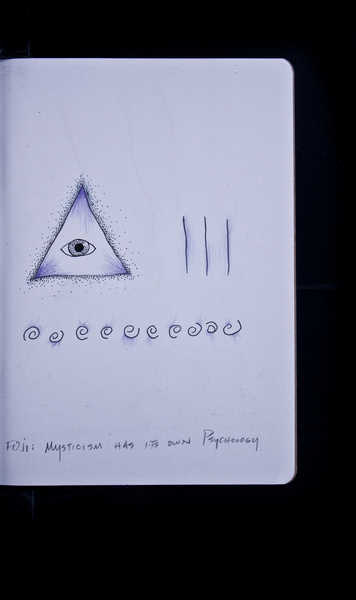 FOJI: MYSTICISM HAS ITS OWN PSYCHOLOGY